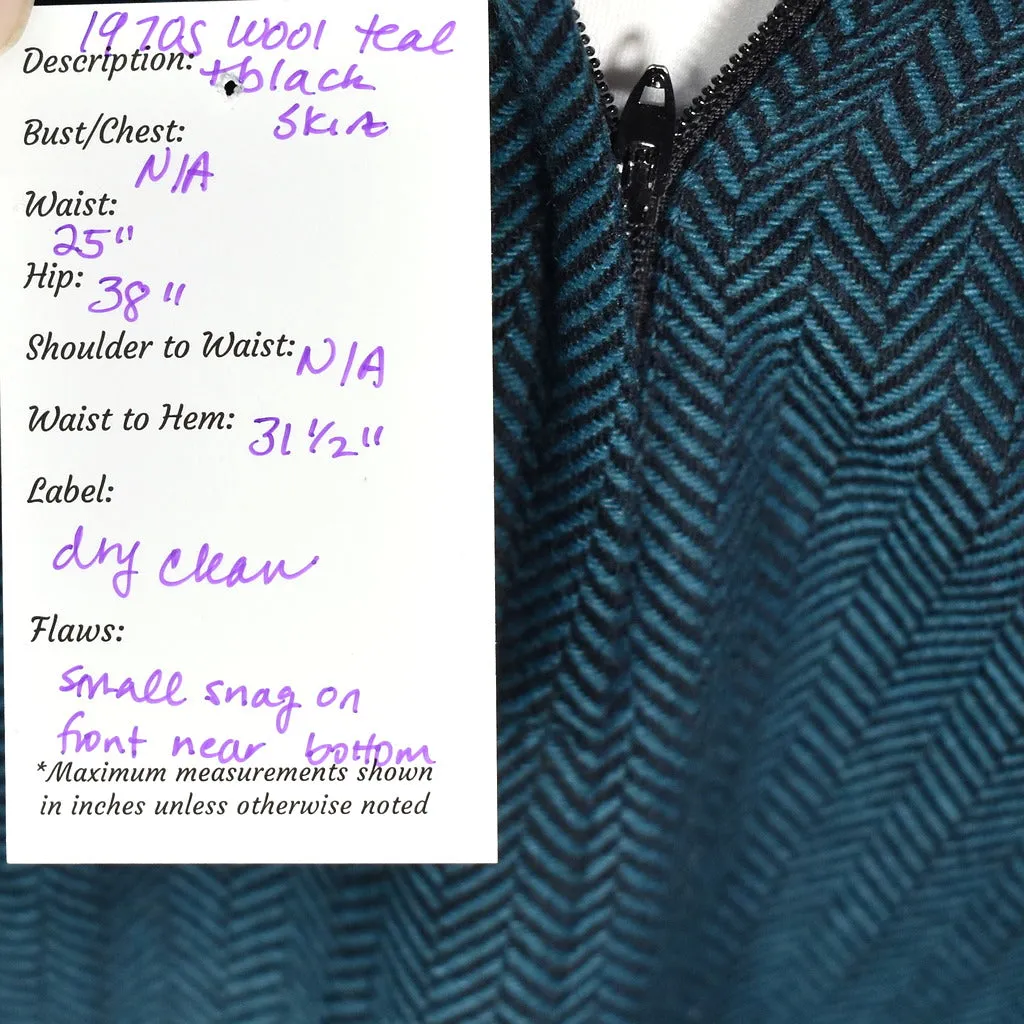 1970s wool teal
Description: + black
skirt
Bust/Chest:
N/A
Waist:
25"
Hip: 38"
Shoulder to Waist: N/A
Waist to Hem: 31 1/2"
Label:
dry clean
Flaws:
small snag on
front near bottom
*Maximum measurements shown
in inches unless otherwise noted